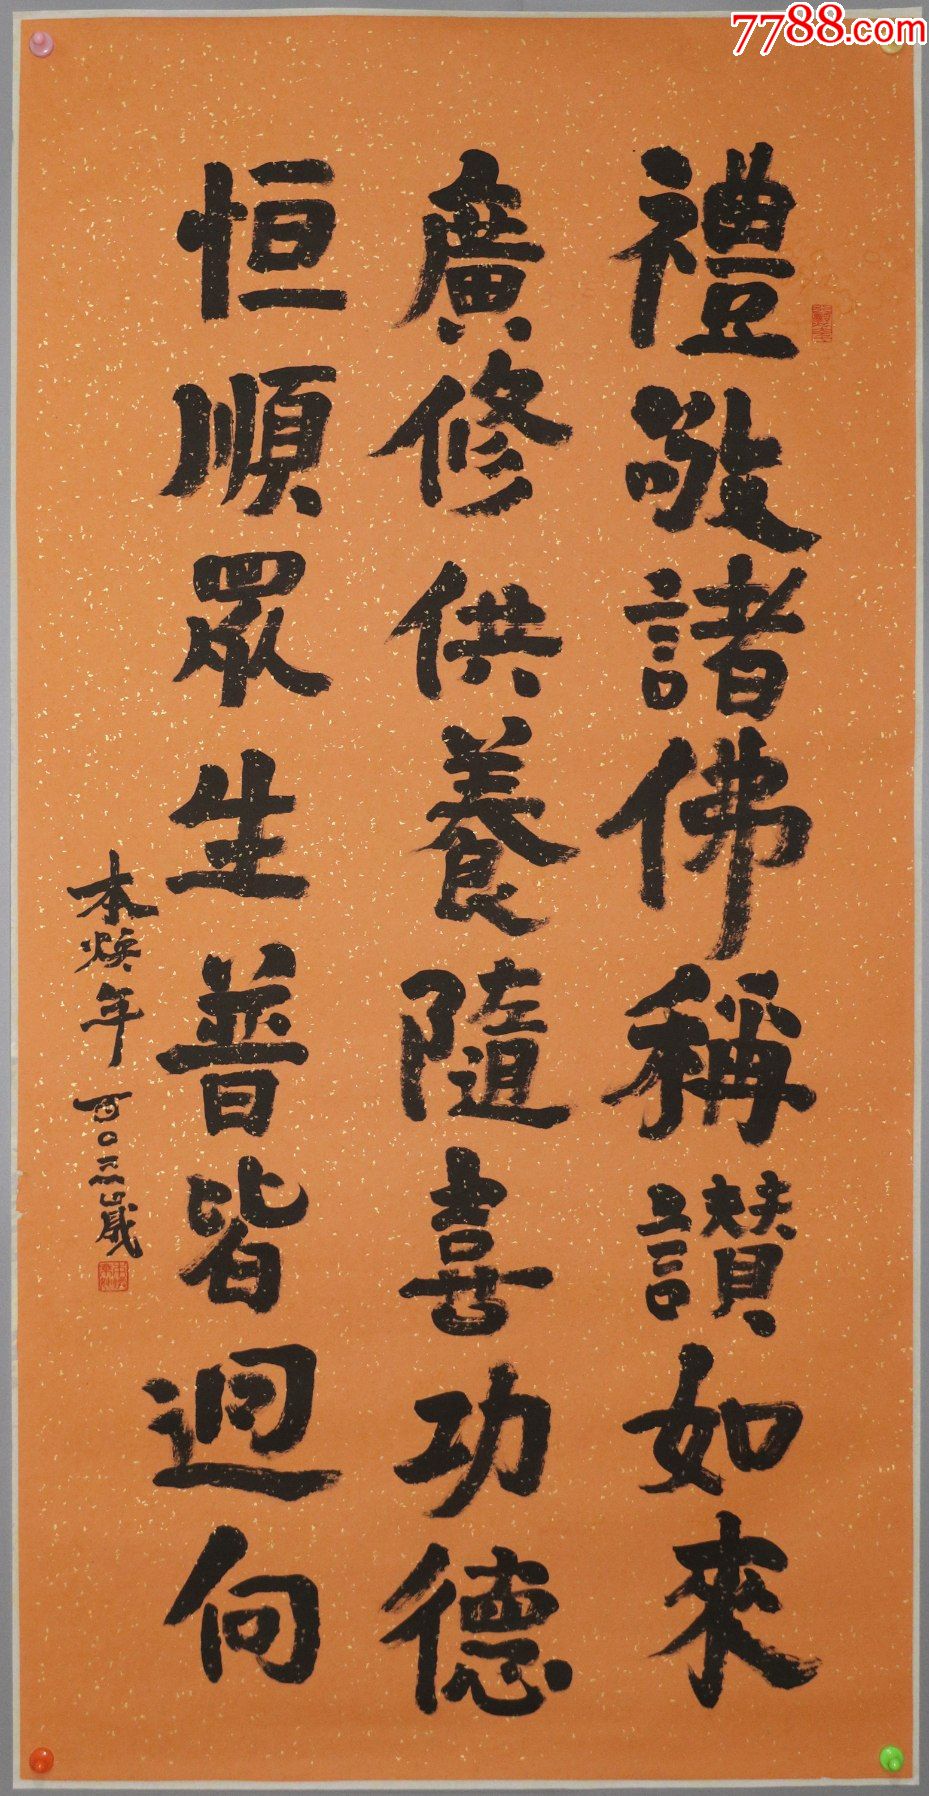 7788.com
禮敬諸佛稱讚如來
廣修供養隨喜功德
恒順眾生普皆迴向
本煥年